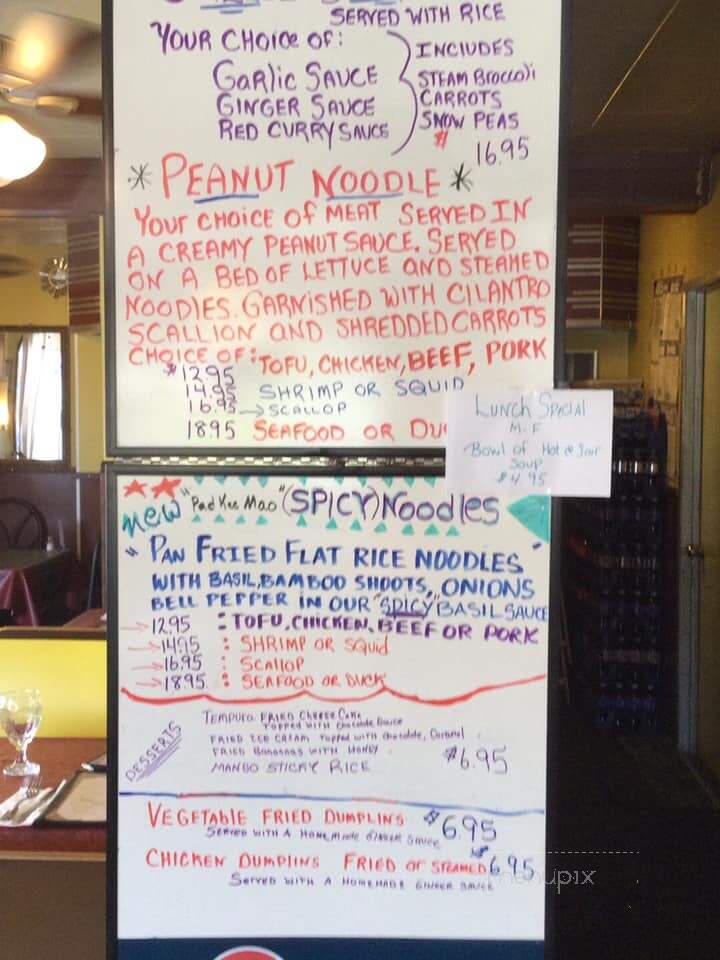 SERVED WITH RICE
YOUR CHOICE OF:
INCLUDES
GARLIC SAUCE
STEAM BROCCOLI
GINGER SAUCE
CARROTS
RED CURRY SAUCE
SNOW PEAS
$ 16.95
* PEANUT NOODLE *
YOUR CHOICE OF MEAT SERVED IN
A CREAMY PEANUT SAUCE. SERVED
ON A BED OF LETTUCE AND STEAMED
NOODLES. GARNISHED WITH CILANTRO
SCALLION AND SHREDDED CARROTS
CHOICE OF: TOFU, CHICKEN, BEEF, PORK
$12.95
14.95 SHRIMP OR SQUID
16.95 → SCALLOP
18.95 SEAFOOD OR DU
Lunch Special
M-F
Bowl of Hot & Sour
Soup
$4.95
New "Pad Kee Mao" (SPICY) Noodles
"PAN FRIED FLAT RICE NOODLES"
WITH BASIL, BAMBOO SHOOTS, ONIONS
BELL PEPPER IN OUR "SPICY" BASIL SAUCE
→ 12.95 : TOFU, CHICKEN, BEEF OR PORK
→ 14.95 : SHRIMP OR SQUID
→ 16.95 : SCALLOP
→ 18.95 : SEAFOOD OR DUCK
DESSERTS
TEMPURA FRIED CHEESE CAKE
TOPPED WITH Chocolate Sauce
FRIED ICE CREAM TOPPED WITH Chocolate, Caramel
FRIED BANANAS WITH HONEY
$6.95
MANGO STICKY RICE
VEGETABLE FRIED DUMPLINS $6.95
SERVED WITH A HOMEMADE GINGER SAUCE
CHICKEN DUMPLINS FRIED OR STEAMED $6.95
SERVED WITH A HOMEMADE GINGER SAUCE
menupix